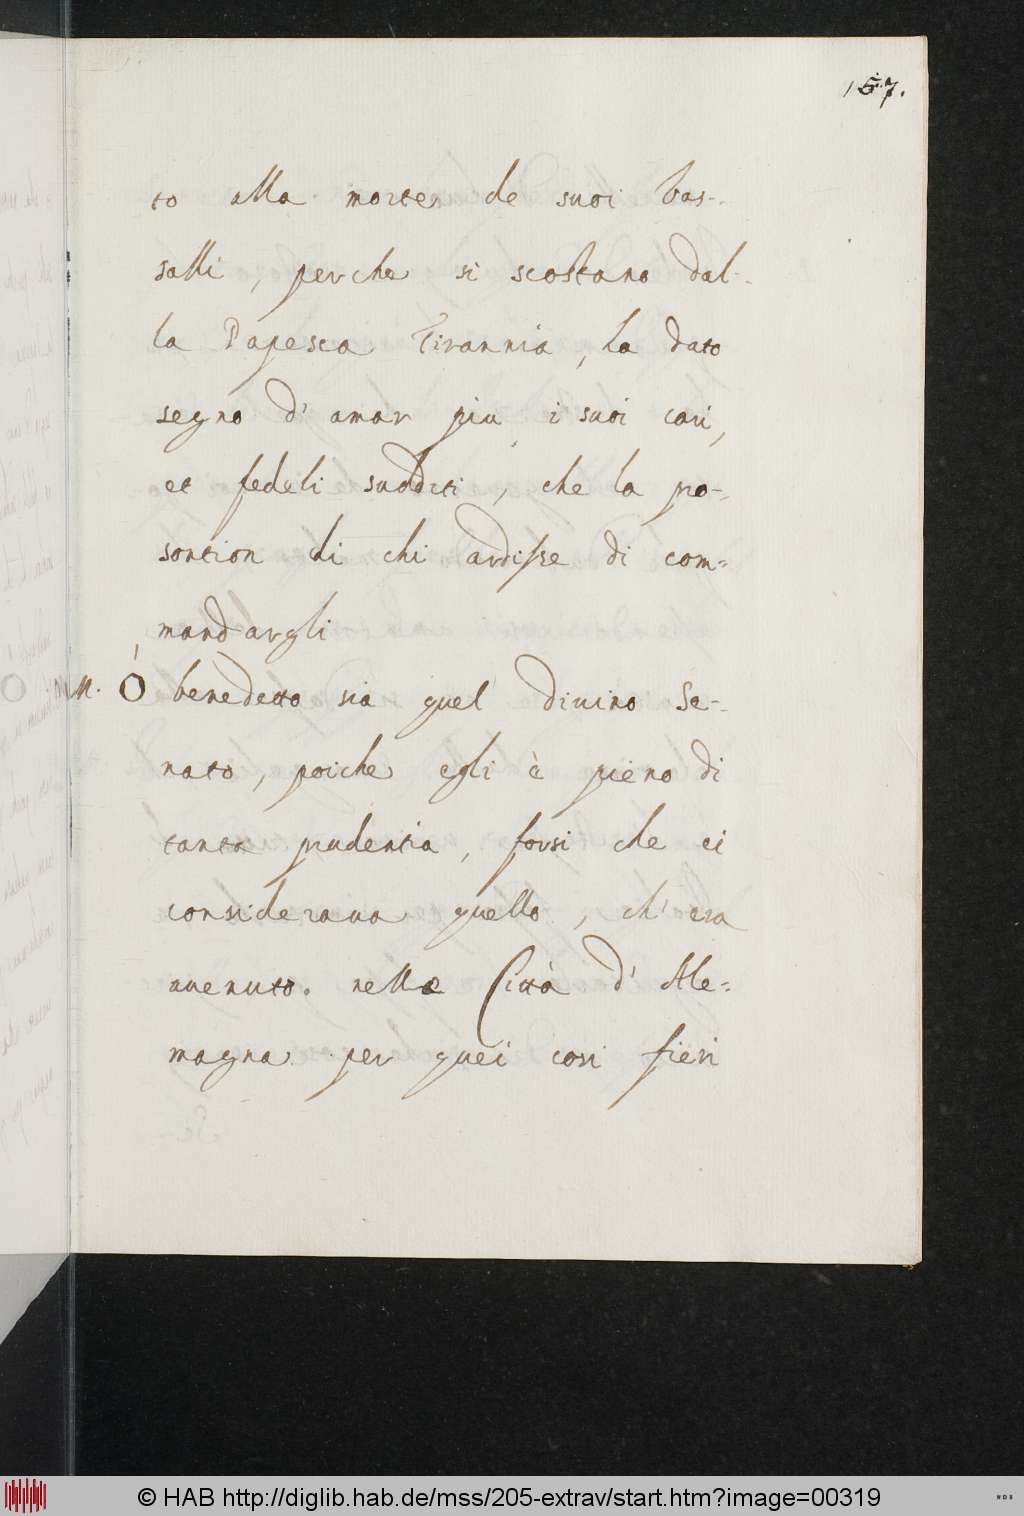 157.
to alla morte de suoi vas-
salli, perche si scostano dal-
la Papesca Tirannia, ha dato
segno d'amar piu i suoi cari,
et fedeli sudditi, che la po-
sontion di chi ardisse di com-
mandargli
M. Ó benedetto sia quel divino Se-
nato, poiche egli è pieno di
tanta prudentia, forsi che ei
considerava quello, ch'era
avenuto. nelle Città d'Ale-
magna per quei cosi fieri
© HAB http://diglib.hab.de/mss/205-extrav/start.htm?image=00319